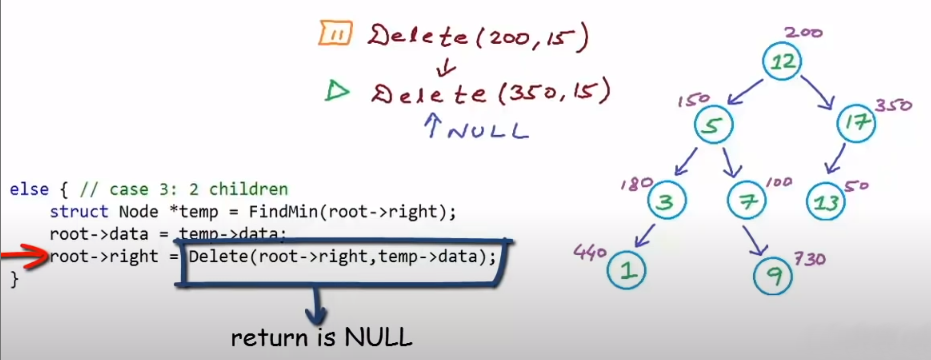 Delete(200,15)
↓
Delete(350,15)
↑ NULL
else { // case 3: 2 children
struct Node *temp = FindMin(root->right);
root->data = temp->data;
root->right = Delete(root->right,temp->data);
}
return is NULL
200
12
150
5
350
17
180
3
100
7
50
13
440
1
730
9